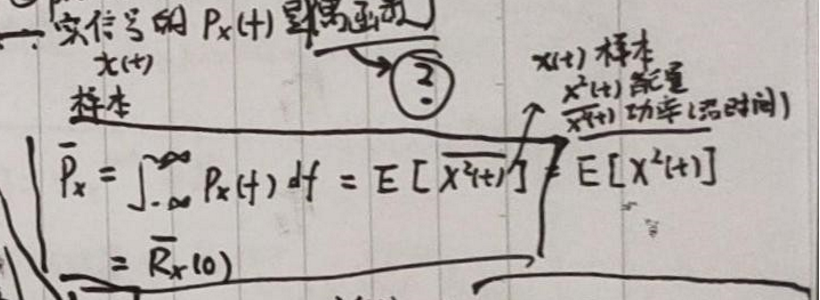 实信号的 Pₓ(f) 是偶函数
x(t)
样本
?
x(t) 样本
x²(t) 能量
\overline{x²(t)} 功率(沿时间)
\overline{P}ₓ = ∫_{-∞}^{∞} Pₓ(f) df = E[\overline{X²(t)}] = E[X²(t)]
= \overline{R}ₓ(0)